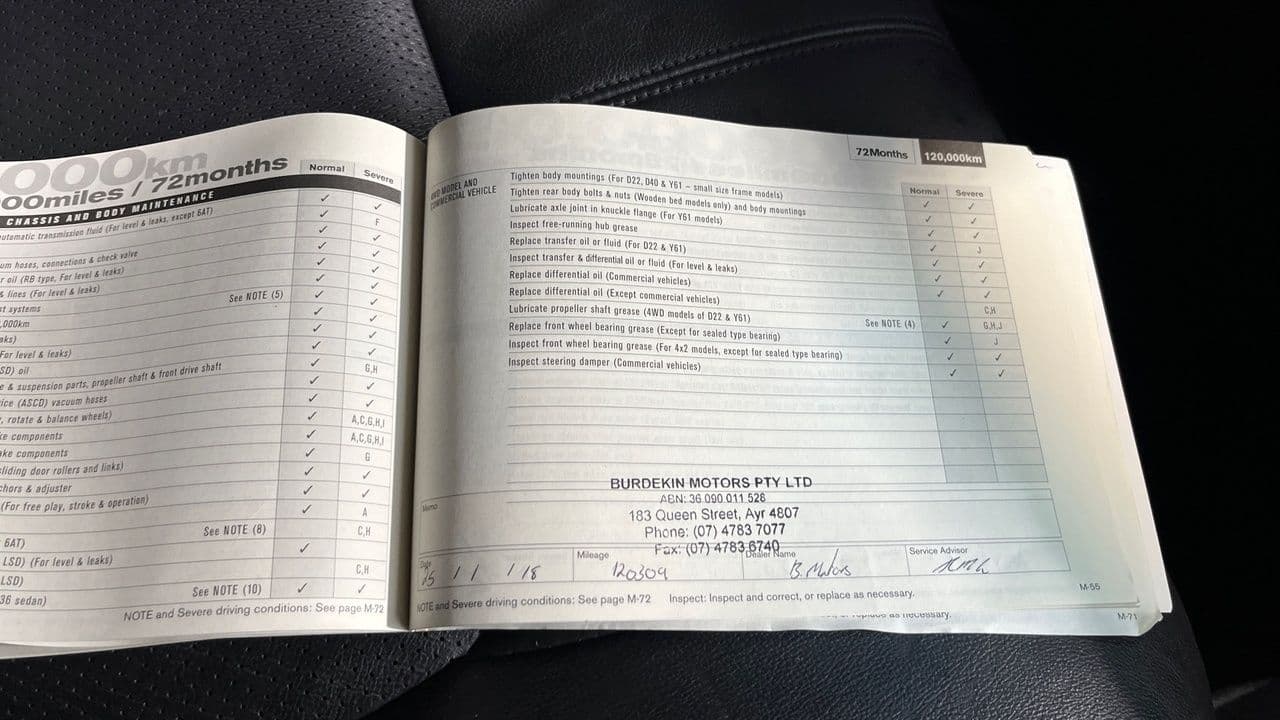 000km
00miles / 72months
CHASSIS AND BODY MAINTENANCE
Normal Severe
utomatic transmission fluid (For level & leaks, except 6AT) ✓ ✓
✓ F
um hoses, connections & check valve ✓ ✓
r oil (RB type, For level & leaks) ✓ ✓
& lines (For level & leaks) ✓ ✓
st systems See NOTE (5) ✓ ✓
,000km ✓ ✓
aks) ✓ ✓
For level & leaks) ✓ ✓
SD) oil ✓ G,H
e & suspension parts, propeller shaft & front drive shaft ✓ ✓
ice (ASCD) vacuum hoses ✓ ✓
, rotate & balance wheels) ✓ A,C,G,H,I
ke components ✓ A,C,G,H,I
ake components ✓ G
sliding door rollers and links) ✓ ✓
chors & adjuster ✓ ✓
(For free play, stroke & operation) ✓ A
See NOTE (8) C,H
6AT) ✓
LSD) (For level & leaks)
LSD) C,H
36 sedan) See NOTE (10) ✓ ✓
NOTE and Severe driving conditions: See page M-72
72Months 120,000km
Normal Severe
4WD MODEL AND
COMMERCIAL VEHICLE
Tighten body mountings (For D22, D40 & Y61 – small size frame models) ✓ ✓
Tighten rear body bolts & nuts (Wooden bed models only) and body mountings ✓ ✓
Lubricate axle joint in knuckle flange (For Y61 models) ✓ ✓
Inspect free-running hub grease ✓ J
Replace transfer oil or fluid (For D22 & Y61) ✓ ✓
Inspect transfer & differential oil or fluid (For level & leaks) ✓ ✓
Replace differential oil (Commercial vehicles) C,H
Replace differential oil (Except commercial vehicles) G,H,J
Lubricate propeller shaft grease (4WD models of D22 & Y61) See NOTE (4) ✓ J
Replace front wheel bearing grease (Except for sealed type bearing) ✓ ✓
Inspect front wheel bearing grease (For 4x2 models, except for sealed type bearing) ✓ ✓
Inspect steering damper (Commercial vehicles) ✓ ✓
BURDEKIN MOTORS PTY LTD
ABN: 36 090 011 528
183 Queen Street, Ayr 4807
Phone: (07) 4783 7077
Fax: (07) 4783 6740
Memo
Date Mileage Dealer Name Service Advisor
15 / 1 / 18 120309 B. Motors
NOTE and Severe driving conditions: See page M-72 Inspect: Inspect and correct, or replace as necessary.
M-55
as necessary.
M-71